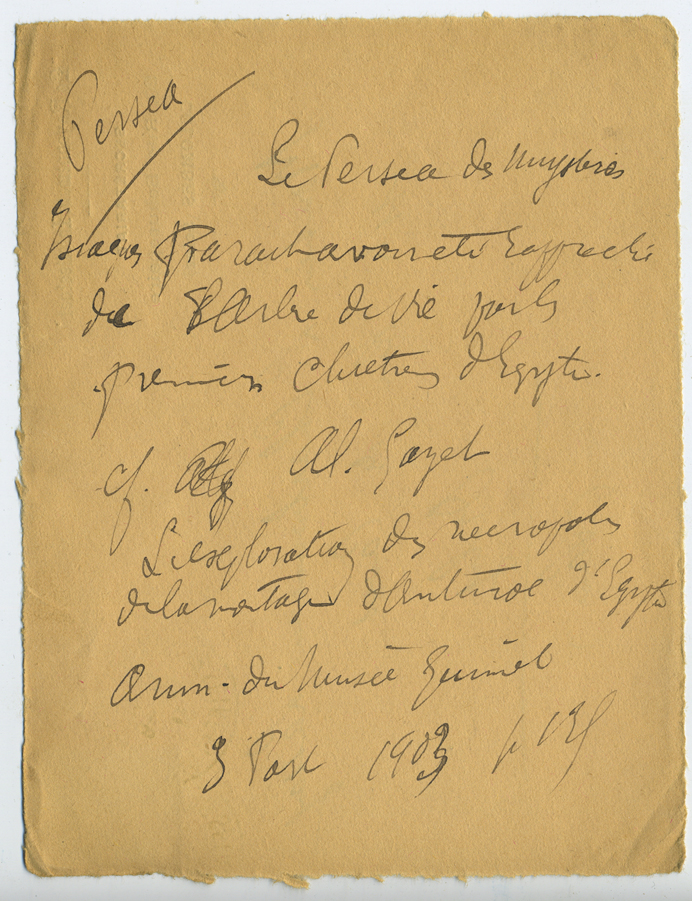 Persea
Le Persea des Mystères
Isiaques rapproché
de l'Arbre de Vie par les
premiers chrétiens d'Egypte.
cf. Al. Gayet
L'exploration des necropoles
de la montagne d'Antinoé d'Egypte
Ann. du Musée Guimet
3 Part 1903 p